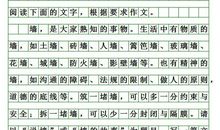 阅读下面的文字，根据要求作文。
墙，是大家熟知的事物。生活中有有形的
墙，如土墙、砖墙、人墙、篱笆墙、玻璃墙、
花墙、城墙、防火墙、影壁墙等；也有精神的
墙，如沟通的障碍、法规的限制、做人的原则，
道德的底线等。筑一堵墙，可以多一分约束与
安全；拆一堵墙，可以少一分封闭与隔阂。请